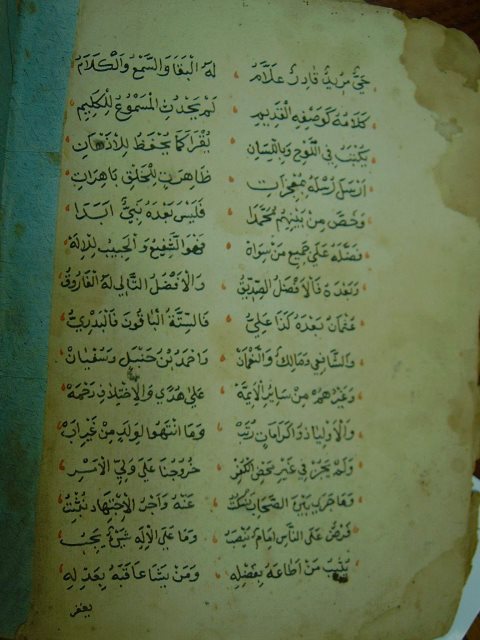 حَيٌّ مُرِيدٌ قَادِرٌ عَلَّامُ ، لَهُ الْبَقَا وَالسَّمْعُ وَالْكَلَامُ
كَلَامُهُ كَوَصْفِهِ الْقَدِيمِ ، لَمْ يَحْدُثِ الْمَسْمُوعُ لِلْكَلِيمِ
يُكْتَبُ فِي اللَّوْحِ وَبِاللِّسَانِ ، يُقْرَا كَمَا يُحْفَظُ لِلْاَذْهَانِ
اَرْسَلَ رُسْلَهُ بِمُعْجِزَاتٍ ، ظَاهِرَةٍ لِلْخَلْقِ بَاهِرَاتِ
وَخَصَّ مِنْ بَيْنِهِمُ مُحَمَّدَا ، فَلَيْسَ بَعْدَهُ نَبِيٌّ اَبَدَا
فَضَّلَهُ عَلَى جَمِيعِ مَنْ سِوَاهُ ، فَهْوَ الشَّفِيعُ وَالْحَبِيبُ لِلْاِلَهْ
وَبَعْدَهُ فَالْاَفْضَلُ الصِّدِّيقُ ، وَالْاَفْضَلُ التَّالِي لَهُ الْفَارُوقُ
عُثْمَانُ بَعْدَهُ كَذَا عَلِيُّ ، فَالسِّتَّةُ الْبَاقُونَ فَالْبَدْرِيُّ
وَالشَّافِعِي وَمَالِكُ وَالنُّعْمَانُ ، وَاحْمَدُ بْنُ حَنْبَلٍ وَسُفْيَانْ
وَغَيْرُهُمْ مِنْ سَايِرِ الْاَيِمَّةْ ، عَلَى هُدًى وَالْاِخْتِلَافُ رَحْمَةْ
وَالْاَوْلِيَا ذَوُا كَرَامَاتٍ رُتَبْ ، وَمَا انْتَهَوْا لِوَلَدٍ مِنْ غَيْرِ اَبْ
وَلَمْ يَجُزْ فِي غَيْرِ مَحْضِ الْكُفْرِ ، خُرُوجُنَا عَلَى وَلِيِّ الْاَمْرِ
وَمَا جَرَى بَيْنَ الصَّحَابِ نَسْكُتُ ، عَنْهُ وَاَجْرَ الْاِجْتِهَادِ نُثْبِتُ
فَرْضٌ عَلَى النَّاسِ اِمَامٌ يُنْصَبُ ، وَمَا عَلَى الْاِلَهِ شَيْءٌ يَجِبُ
يُثِيبُ مَنْ اَطَاعَهُ بِفَضْلِهِ ، وَمَنْ يَشَا عَاقَبَهُ بِعَدْلِهِ
يغفر